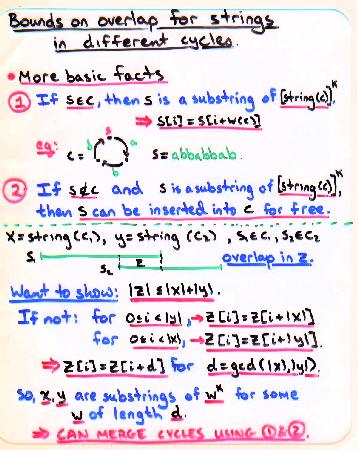 Bounds on overlap for strings
in different cycles.
• More basic facts
① If s∈c, then s is a substring of [string(c)]^k.
⇒ s[i] = s[i+w(c)]
eg: c = b a a b s = abbabbab.
② If s∉c and s is a substring of [string(c)]^k,
then s can be inserted into c for free.
x = string(c₁), y = string(c₂), s₁∈c₁, s₂∈c₂
s₁ s₂ z overlap in z.
Want to show: |z| ≤ |x|+|y|.
If not: for 0≤i<|y|, → z[i] = z[i+|x|]
for 0≤i<|x|, → z[i] = z[i+|y|].
⇒ z[i] = z[i+d] for d = gcd(|x|,|y|).
So, x, y are substrings of w^k for some
w of length d.
⇒ CAN MERGE CYCLES USING ① & ②.